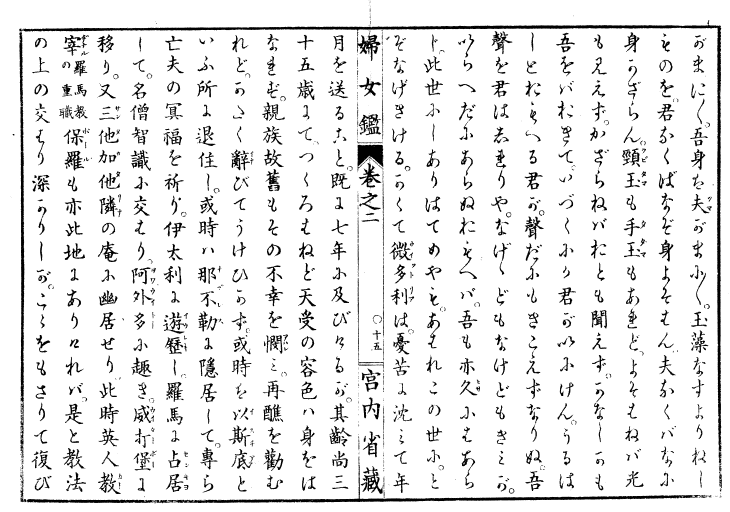 がまに〱。吾身を夫がまに〱。玉藻なすよりねし
ものを。君なくばなぞ身よそはん。夫なくバなにか
身かざらん。頸玉も手玉もあれど。よそはねバ光
も見えず。かざらねバおとも聞えず。かなしかも
吾をバおきて。いづくにか君がいにけん。うるは
しとおもへる君が。聲だにもきこえずなりぬ。吾
聲を君はしれりや。なげゝどもなけどもきミが。
いらへだにあらぬおもへバ。吾も亦久にはあら
じ。此世にしありはてめやも。あはれこの世に。と
ぞなげきける。かくて微多利は。憂苦に沈ミて年
婦女鑑 卷之二 〇十五 宮内省藏
月を送ること。既に七年に及びけるが。其齡尚三
十五歳にて。つくろはねど天受の容色ハ身をは
なれず。親族故舊もその不幸を憫ミ。再醮を勸む
れど。かたく辭びてうけひかず。或時を以斯底と
いふ所に退住し。或時ハ那不勒に隱居して。專ら
亡夫の冥福を祈り。伊太利に遊歷し。羅馬に占居
して。名僧智識に交はり。阿外多に趣き。威打堡に
移り。又三他加他隣の庵に幽居せり。此時英人教
宰羅馬教の重職保羅も亦此地にありけれバ。是と教法
の上の交はり深かりしが。こゝをもさりて復び